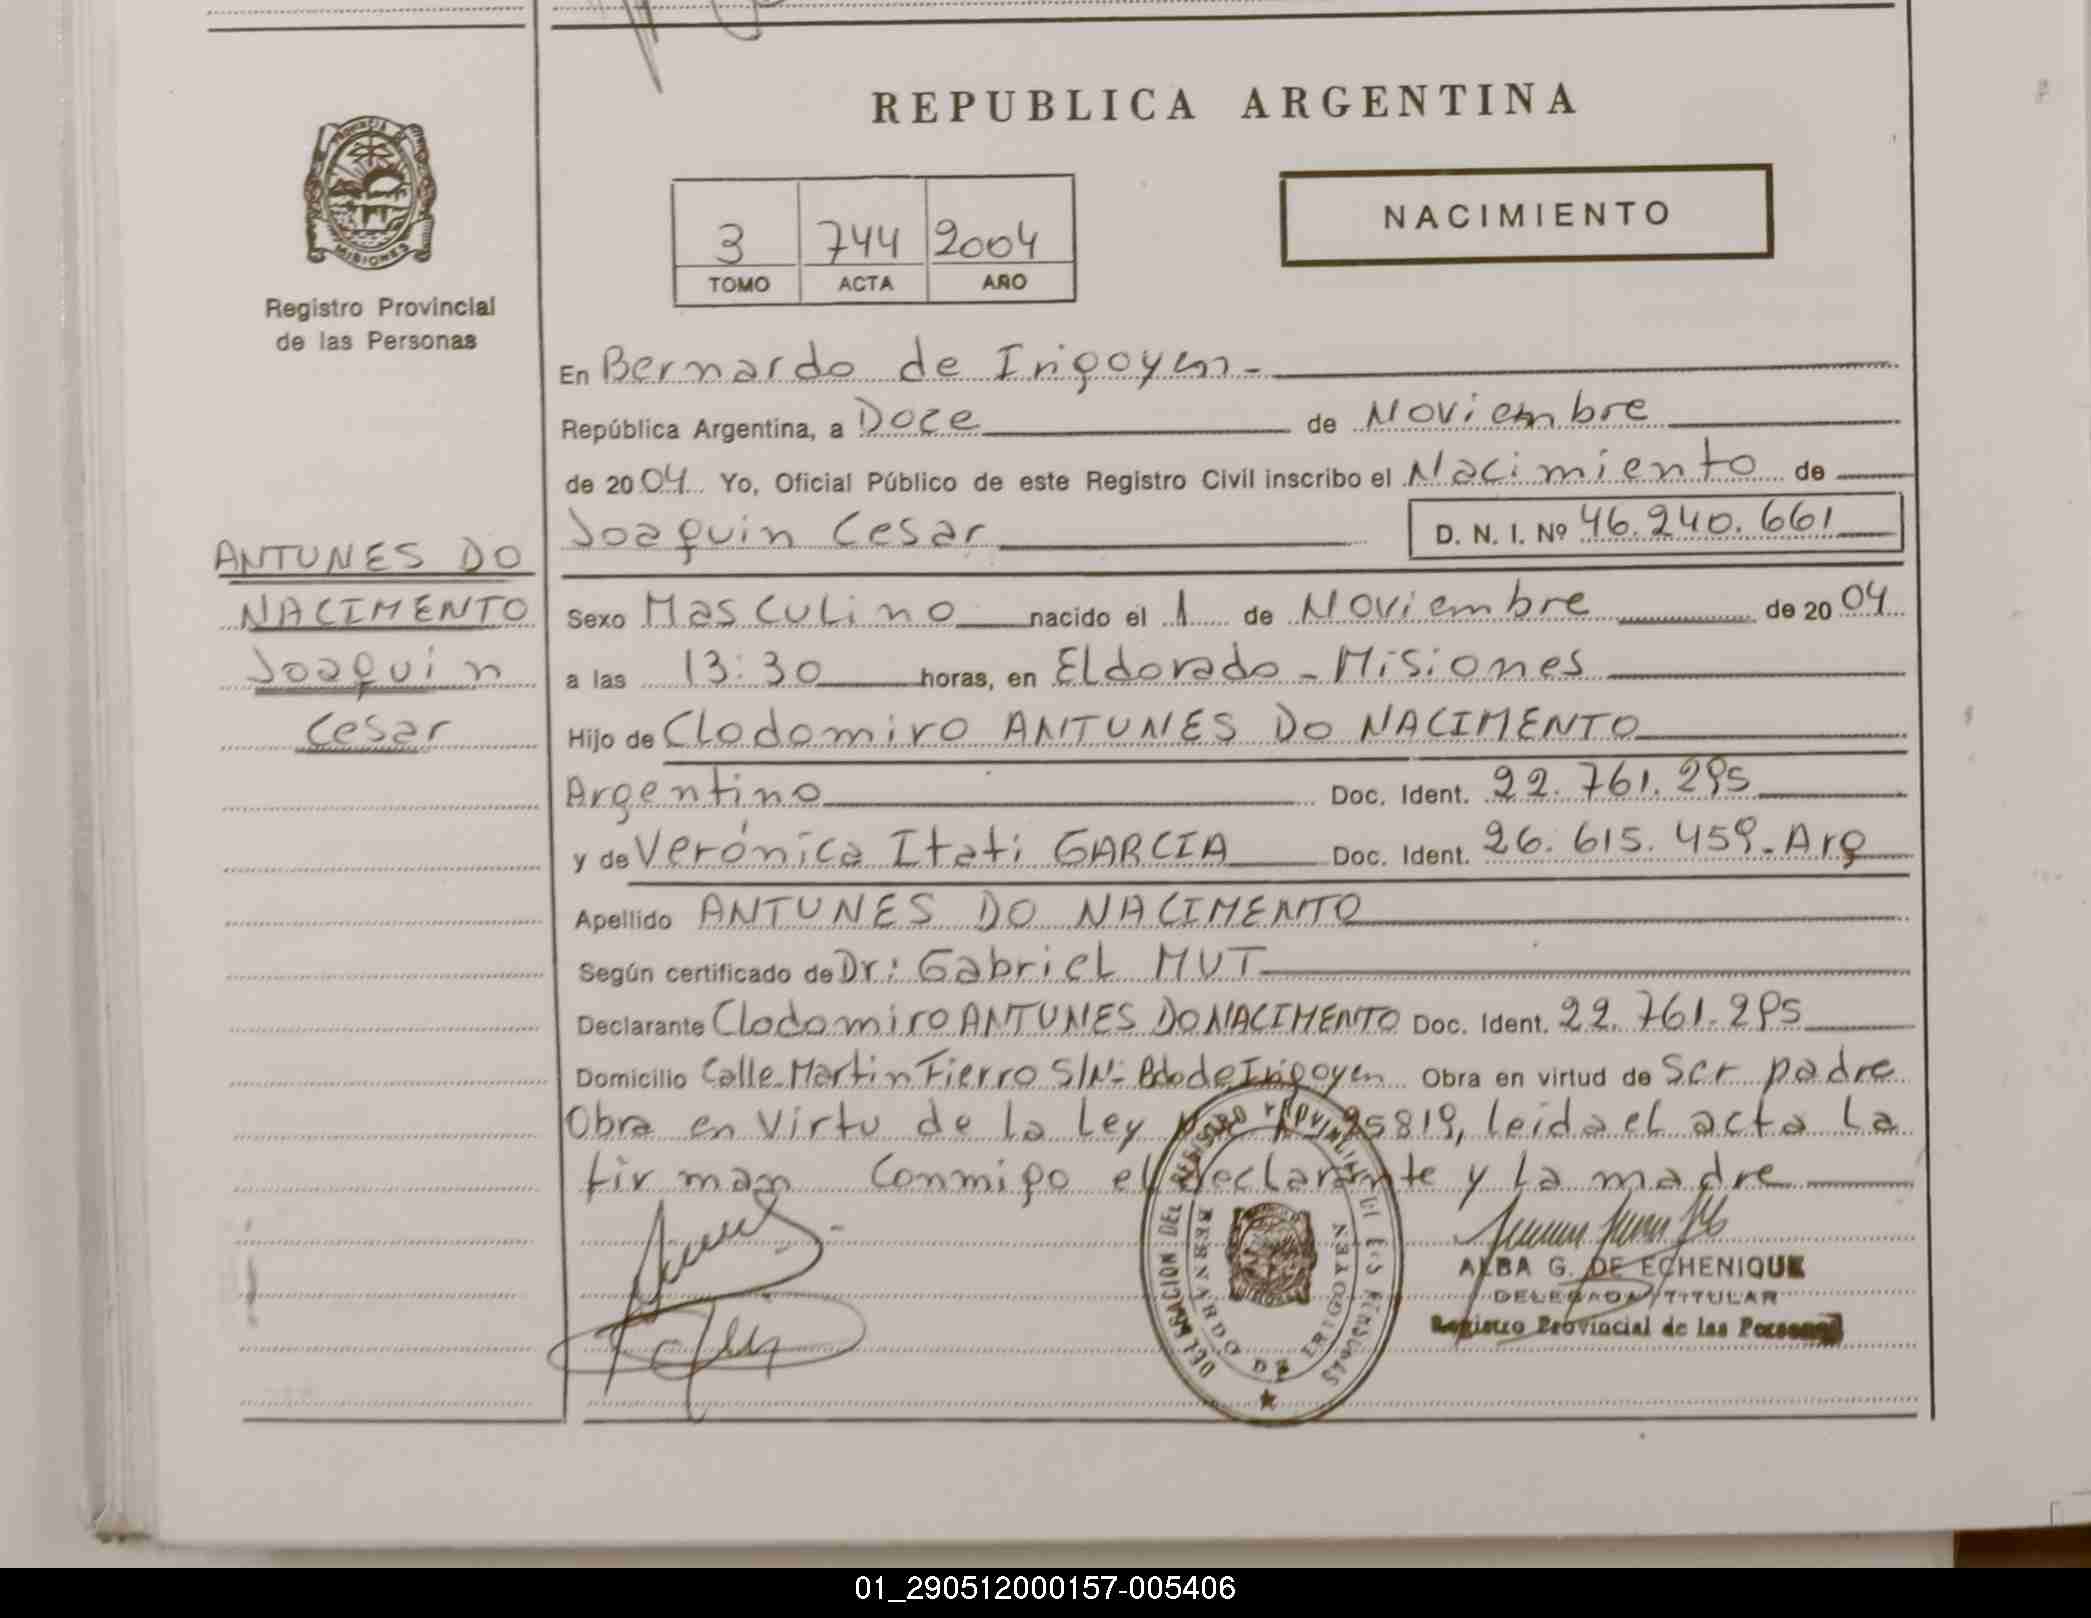 REPUBLICA ARGENTINA
PROVINCIA DE
MISIONES
Registro Provincial
de las Personas
3 744 2004
TOMO ACTA AÑO
NACIMIENTO
En Bernardo de Irigoyen-
República Argentina, a Doce de Noviembre
de 2004 Yo, Oficial Público de este Registro Civil inscribo el Nacimiento de
Joaquin Cesar D. N. I. Nº 46.240.661
ANTUNES DO
NACIMENTO
Joaquin
Cesar
Sexo Masculino nacido el 1 de Noviembre de 2004
a las 13:30 horas, en Eldorado - Misiones
Hijo de Clodomiro ANTUNES DO NACIMENTO
Argentino Doc. Ident. 22.761.295
y de Verónica Itati GARCIA Doc. Ident. 26.615.459-Arg
Apellido ANTUNES DO NACIMENTO
Según certificado de Dr: Gabriel MUT
Declarante Clodomiro ANTUNES DO NACIMENTO Doc. Ident. 22.761.295
Domicilio Calle Martin Fierro S/Nº Bdo de Irigoyen Obra en virtud de ser padre
Obra en virtu de la Ley 25819, leida el acta la
firman conmigo el declarante y la madre
DELEGACION DEL REGISTRO PROVINCIAL DE LAS PERSONAS
BERNARDO DE IRIGOYEN
ALBA G. DE ECHENIQUE
DELEGADA TITULAR
Registro Provincial de las Personas
01_290512000157-005406